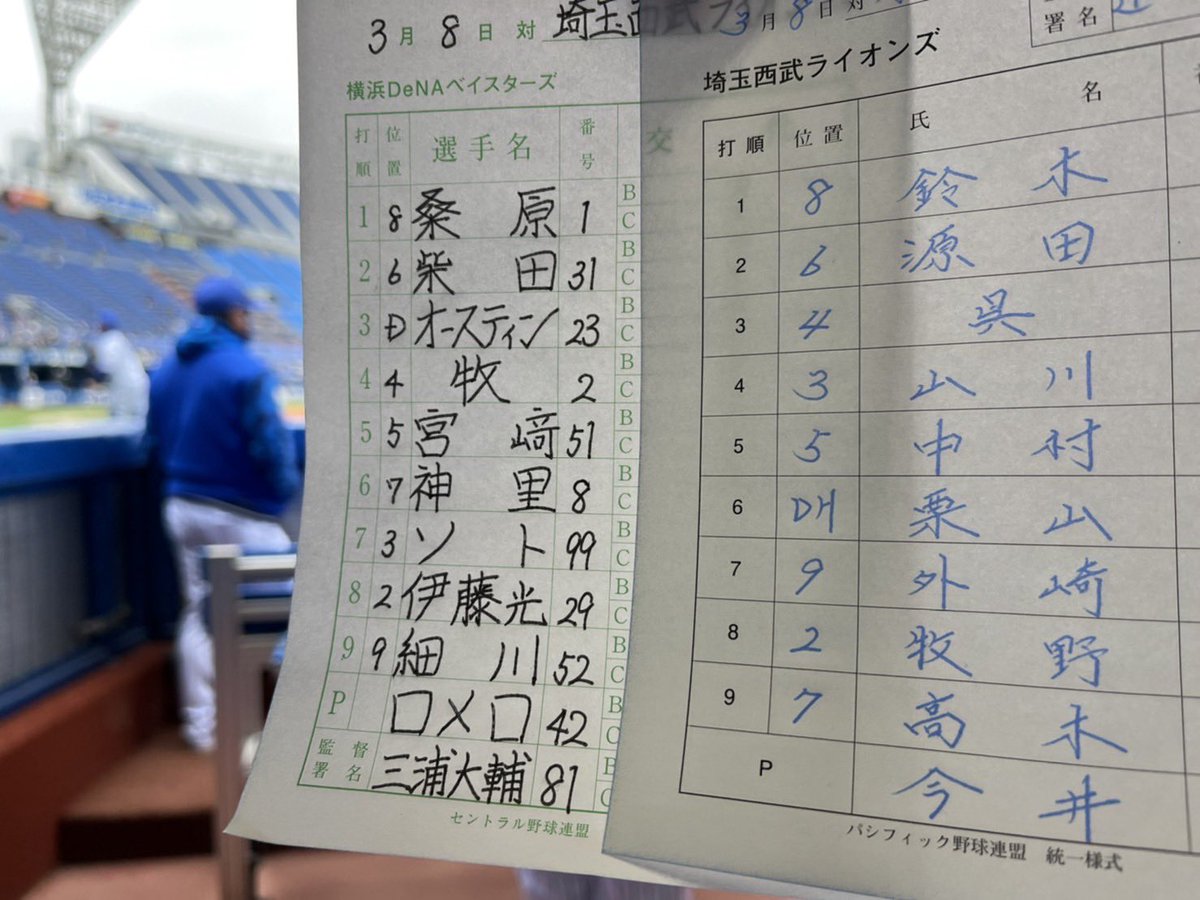 3月8日 対 埼玉西武
横浜DeNAベイスターズ
打順 位置 選手名 番号
1 8 桑原 1 B C
2 6 柴田 31 B C
3 D オースティン 23 B C
4 4 牧 2 B C
5 5 宮﨑 51 B C
6 7 神里 8 B C
7 3 ソト 99 B C
8 2 伊藤光 29 B C
9 9 細川 52 B C
P ロメロ 42 B C
監督署名 三浦大輔 81 B C
セントラル野球連盟
交
3月8日 対
署名
埼玉西武ライオンズ
打順 位置 氏名
1 8 鈴木
2 6 源田
3 4 呉
4 3 山川
5 5 中村
6 DH 栗山
7 9 外崎
8 2 牧野
9 7 高木
P 今井
パシフィック野球連盟 統一様式